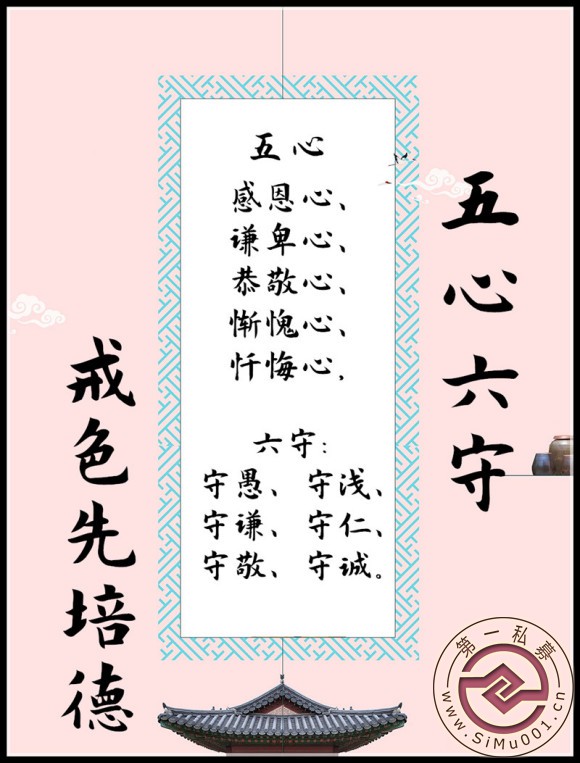 五心六守
五心
感恩心、
谦卑心、
恭敬心、
惭愧心、
忏悔心,
六守:
守愚、 守浅、
守谦、 守仁、
守敬、 守诚。
戒色先培德
第一私募
www.SiMu001.cn